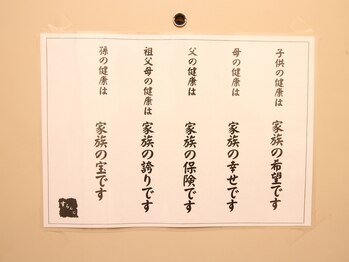 子供の健康は 家族の希望です
母の健康は 家族の幸せです
父の健康は 家族の保険です
祖父母の健康は 家族の誇りです
孫の健康は 家族の宝です